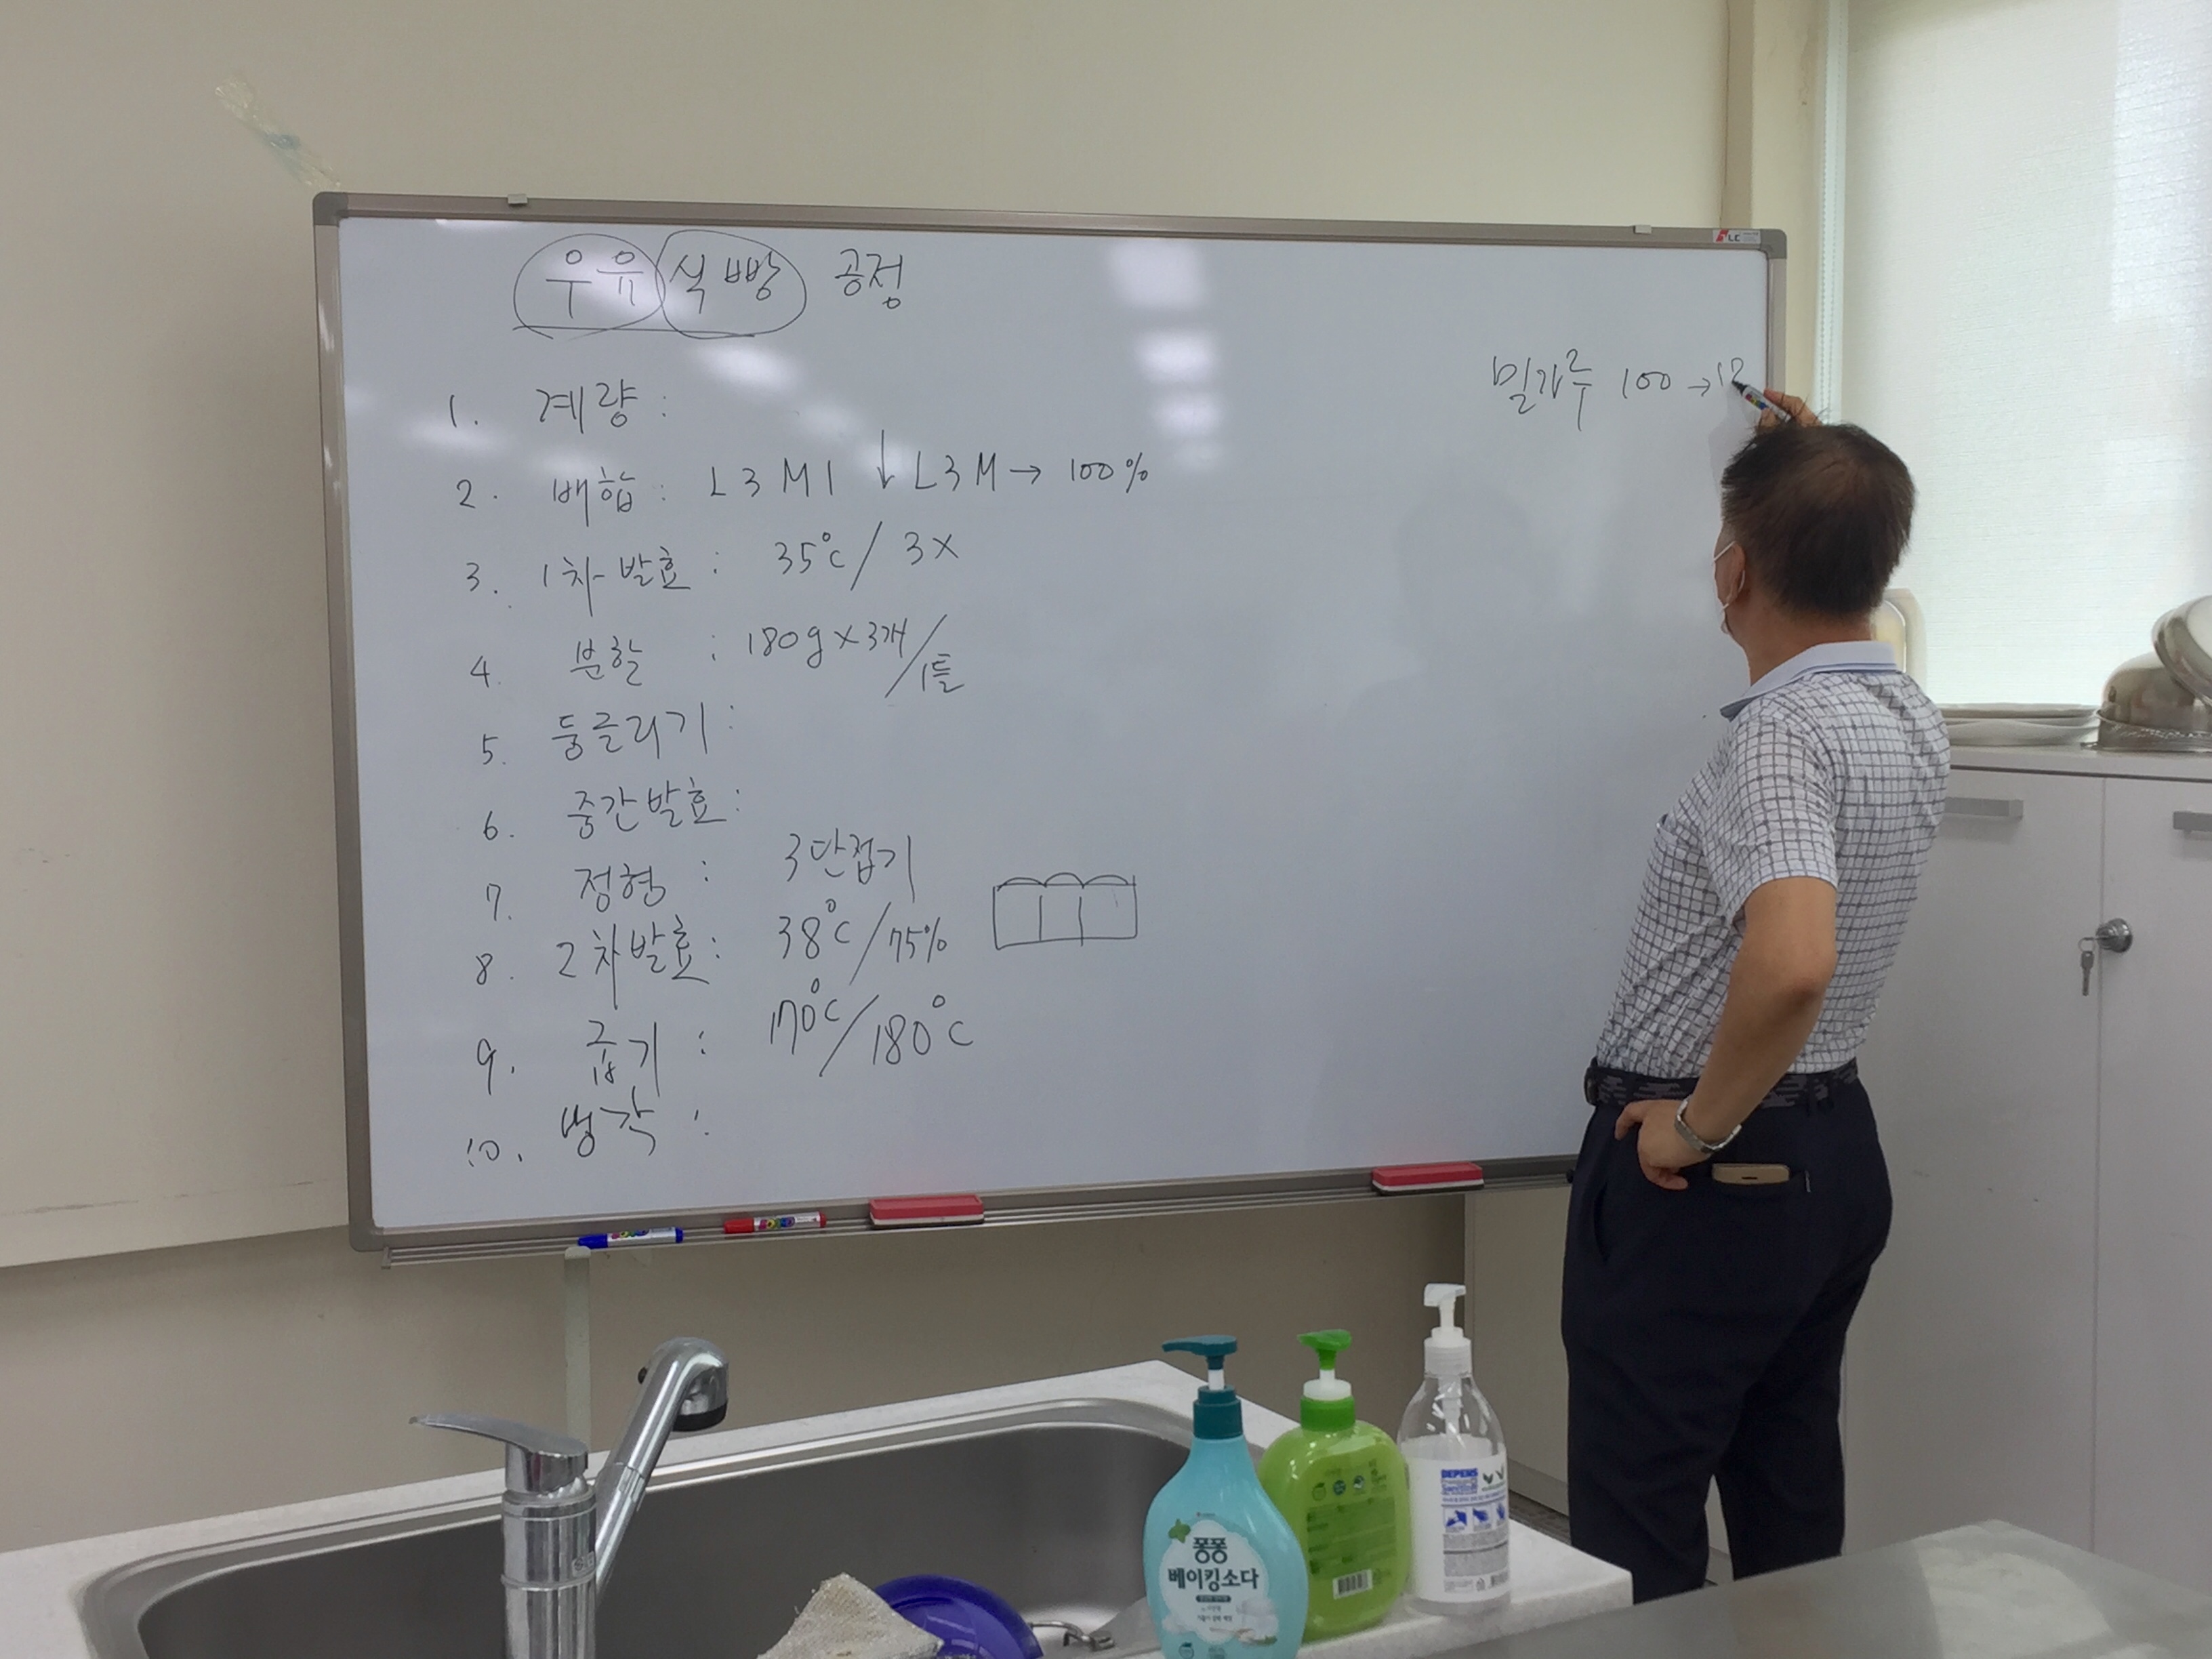 우유식빵 공정
1. 계량 :
2. 배합 : L3M1 ↓ L3M → 100%
3. 1차발효 : 35℃ / 3X
4. 분할 : 180g × 3개 / 1틀
5. 둥글리기 :
6. 중간발효 :
7. 정형 : 3단접기
8. 2차발효 : 38℃ / 75%
9. 굽기 : 170℃ / 180℃
10. 냉각 :
밀가루 100 → 12
퐁퐁
베이킹소다
DEPENS
Sanitizer